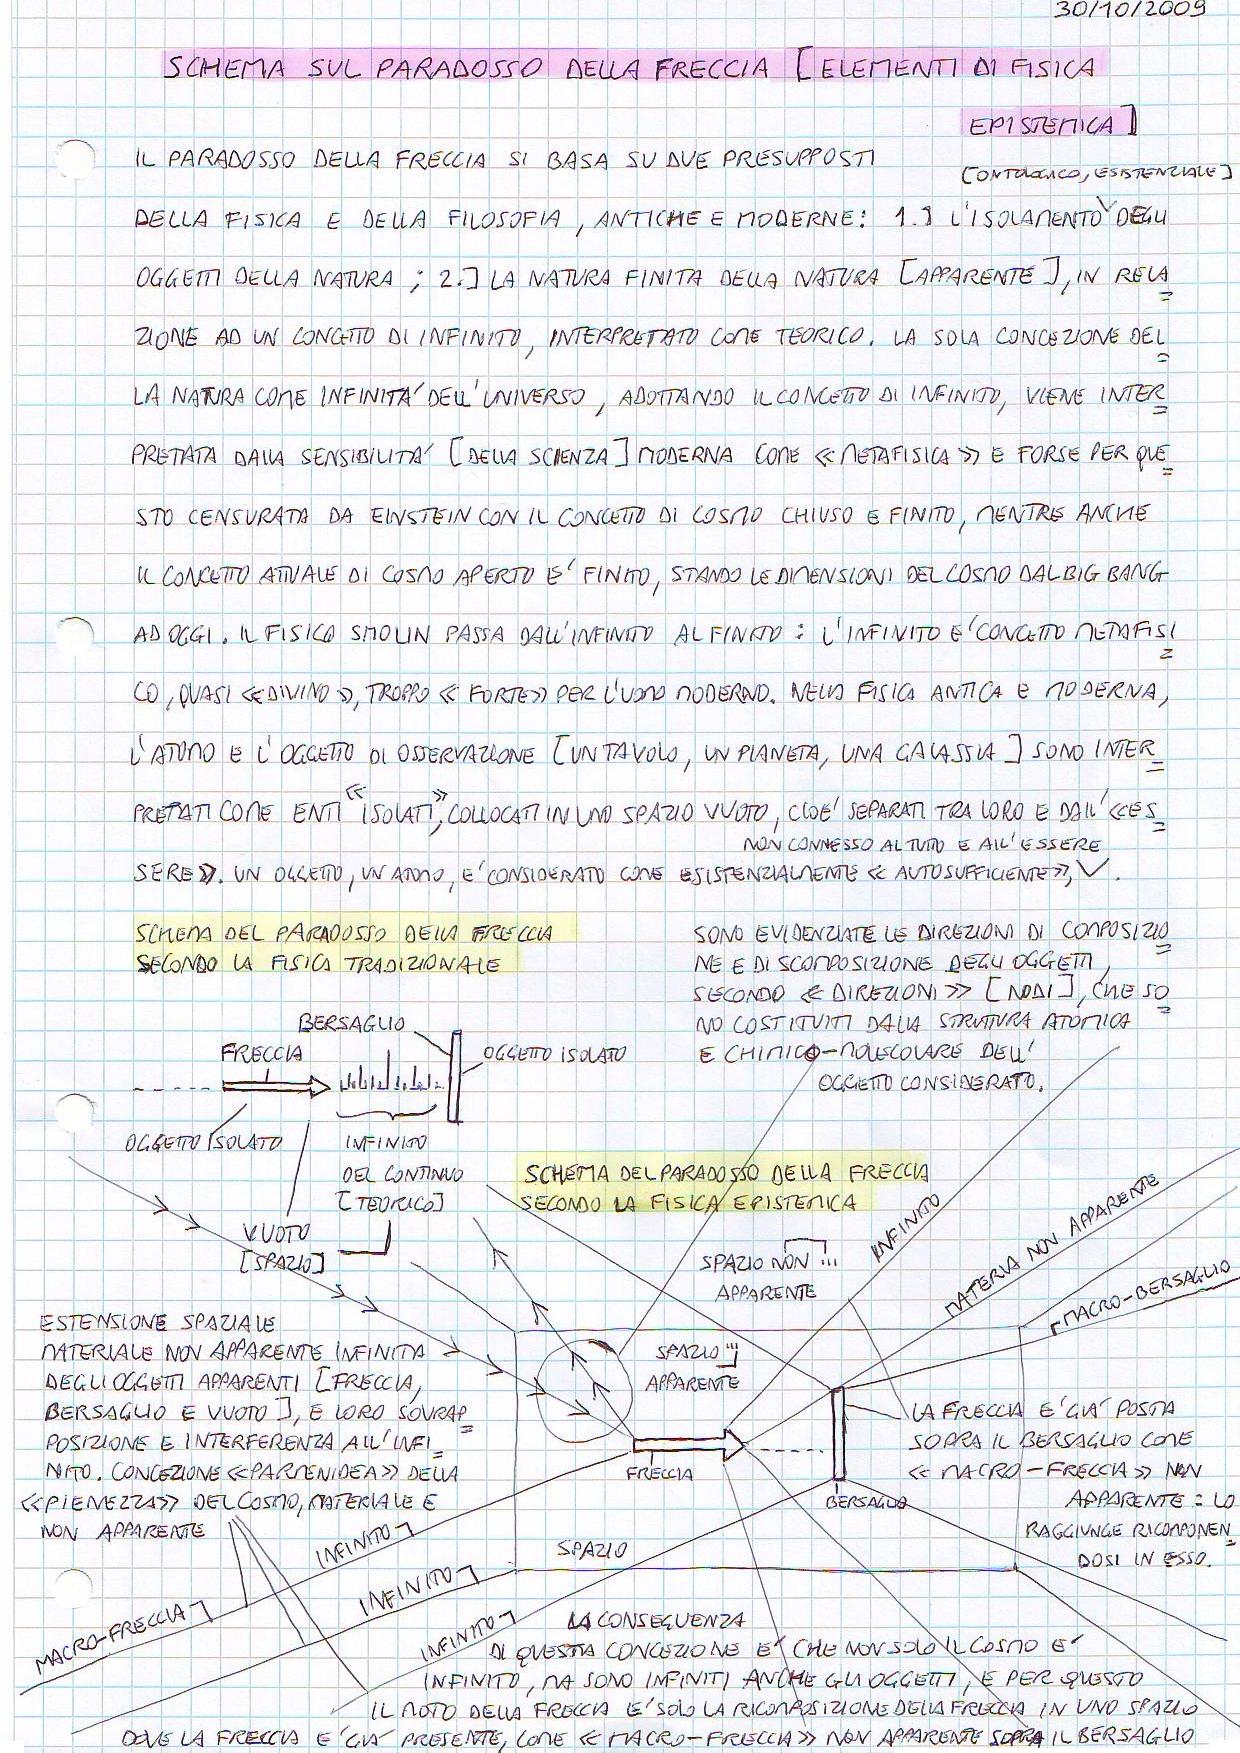 30/10/2009
SCHEMA SUL PARADOSSO DELLA FRECCIA [ELEMENTI DI FISICA
EPISTEMICA]
IL PARADOSSO DELLA FRECCIA SI BASA SU DUE PRESUPPOSTI
[ONTOLOGICO, ESISTENZIALE]
DELLA FISICA E DELLA FILOSOFIA, ANTICHE E MODERNE: 1.] L'ISOLAMENTO DEGLI
OGGETTI DELLA NATURA; 2.] LA NATURA FINITA DELLA NATURA [APPARENTE], IN RELA
ZIONE AD UN CONCETTO DI INFINITO, INTERPRETATO COME TEORICO. LA SOLA CONCEZIONE DEL
LA NATURA COME INFINITA' DELL'UNIVERSO, ADOTTANDO IL CONCETTO DI INFINITO, VIENE INTER
PRETATA DALLA SENSIBILITA' [DELLA SCIENZA] MODERNA COME «METAFISICA» E FORSE PER QUE
STO CENSURATA DA EINSTEIN CON IL CONCETTO DI COSMO CHIUSO E FINITO, MENTRE ANCHE
IL CONCETTO ATTUALE DI COSMO APERTO E' FINITO, STANDO LE DIMENSIONI DEL COSMO DAL BIG BANG
AD OGGI. IL FISICO SMOLIN PASSA DALL'INFINITO AL FINITO: L'INFINITO E' CONCETTO METAFISI
CO, QUASI «DIVINO», TROPPO «FORTE» PER L'UOMO MODERNO. NELLA FISICA ANTICA E MODERNA,
L'ATOMO E L'OGGETTO DI OSSERVAZIONE [UN TAVOLO, UN PIANETA, UNA GALASSIA] SONO INTER
PRETATI COME ENTI «ISOLATI», COLLOCATI IN UNO SPAZIO VUOTO, CIOE' SEPARATI TRA LORO E DALL'«ES
NON CONNESSO AL TUTTO E ALL'ESSERE
SERE». UN OGGETTO, UN ATOMO, E' CONSIDERATO COME ESISTENZIALMENTE «AUTOSUFFICIENTE», .
SCHEMA DEL PARADOSSO DELLA FRECCIA
SECONDO LA FISICA TRADIZIONALE
SONO EVIDENZIATE LE DIREZIONI DI COMPOSIZIO
NE E DI SCOMPOSIZIONE DEGLI OGGETTI,
SECONDO «DIREZIONI» [NODI], CHE SO
NO COSTITUITI DALLA STRUTTURA ATOMICA
E CHIMICO-MOLECOLARE DELL'
OGGETTO CONSIDERATO.
BERSAGLIO
FRECCIA
OGGETTO ISOLATO
OGGETTO ISOLATO
INFINITO
DEL CONTINUO
[TEORICO]
VUOTO
[SPAZIO]
SCHEMA DEL PARADOSSO DELLA FRECCIA
SECONDO LA FISICA EPISTEMICA
SPAZIO NON ...
APPARENTE
INFINITO
MATERIA NON APPARENTE
MACRO-BERSAGLIO
ESTENSIONE SPAZIALE
MATERIALE NON APPARENTE INFINITA
DEGLI OGGETTI APPARENTI [FRECCIA,
BERSAGLIO E VUOTO], E LORO SOVRAP
POSIZIONE E INTERFERENZA ALL'INFI
NITO. CONCEZIONE «PARMENIDEA» DELLA
«PIENEZZA» DEL COSMO, MATERIALE E
NON APPARENTE
SPAZIO ...
APPARENTE
FRECCIA
BERSAGLIO
SPAZIO
LA FRECCIA E' GIA' POSTA
SOPRA IL BERSAGLIO COME
«MACRO-FRECCIA» NON
APPARENTE: LO
RAGGIUNGE RICOMPONEN
DOSI IN ESSO.
INFINITO
INFINITO
INFINITO
MACRO-FRECCIA
LA CONSEGUENZA
DI QUESTA CONCEZIONE E' CHE NON SOLO IL COSMO E'
INFINITO, MA SONO INFINITI ANCHE GLI OGGETTI, E PER QUESTO
IL MOTO DELLA FRECCIA E' SOLO LA RICOMPOSIZIONE DELLA FRECCIA IN UNO SPAZIO
DOVE LA FRECCIA E' GIA' PRESENTE, COME «MACRO-FRECCIA» NON APPARENTE SOPRA IL BERSAGLIO